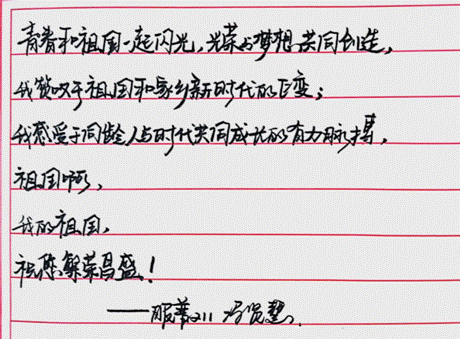 青春和祖国一起闪光,光荣与梦想共同创造,
我赞叹于祖国和家乡新时代的巨变;
我感受于同龄人与时代共同成长的有力脉搏,
祖国啊,
我的祖国,
祝您繁荣昌盛!
——服艺211 冯贤慧